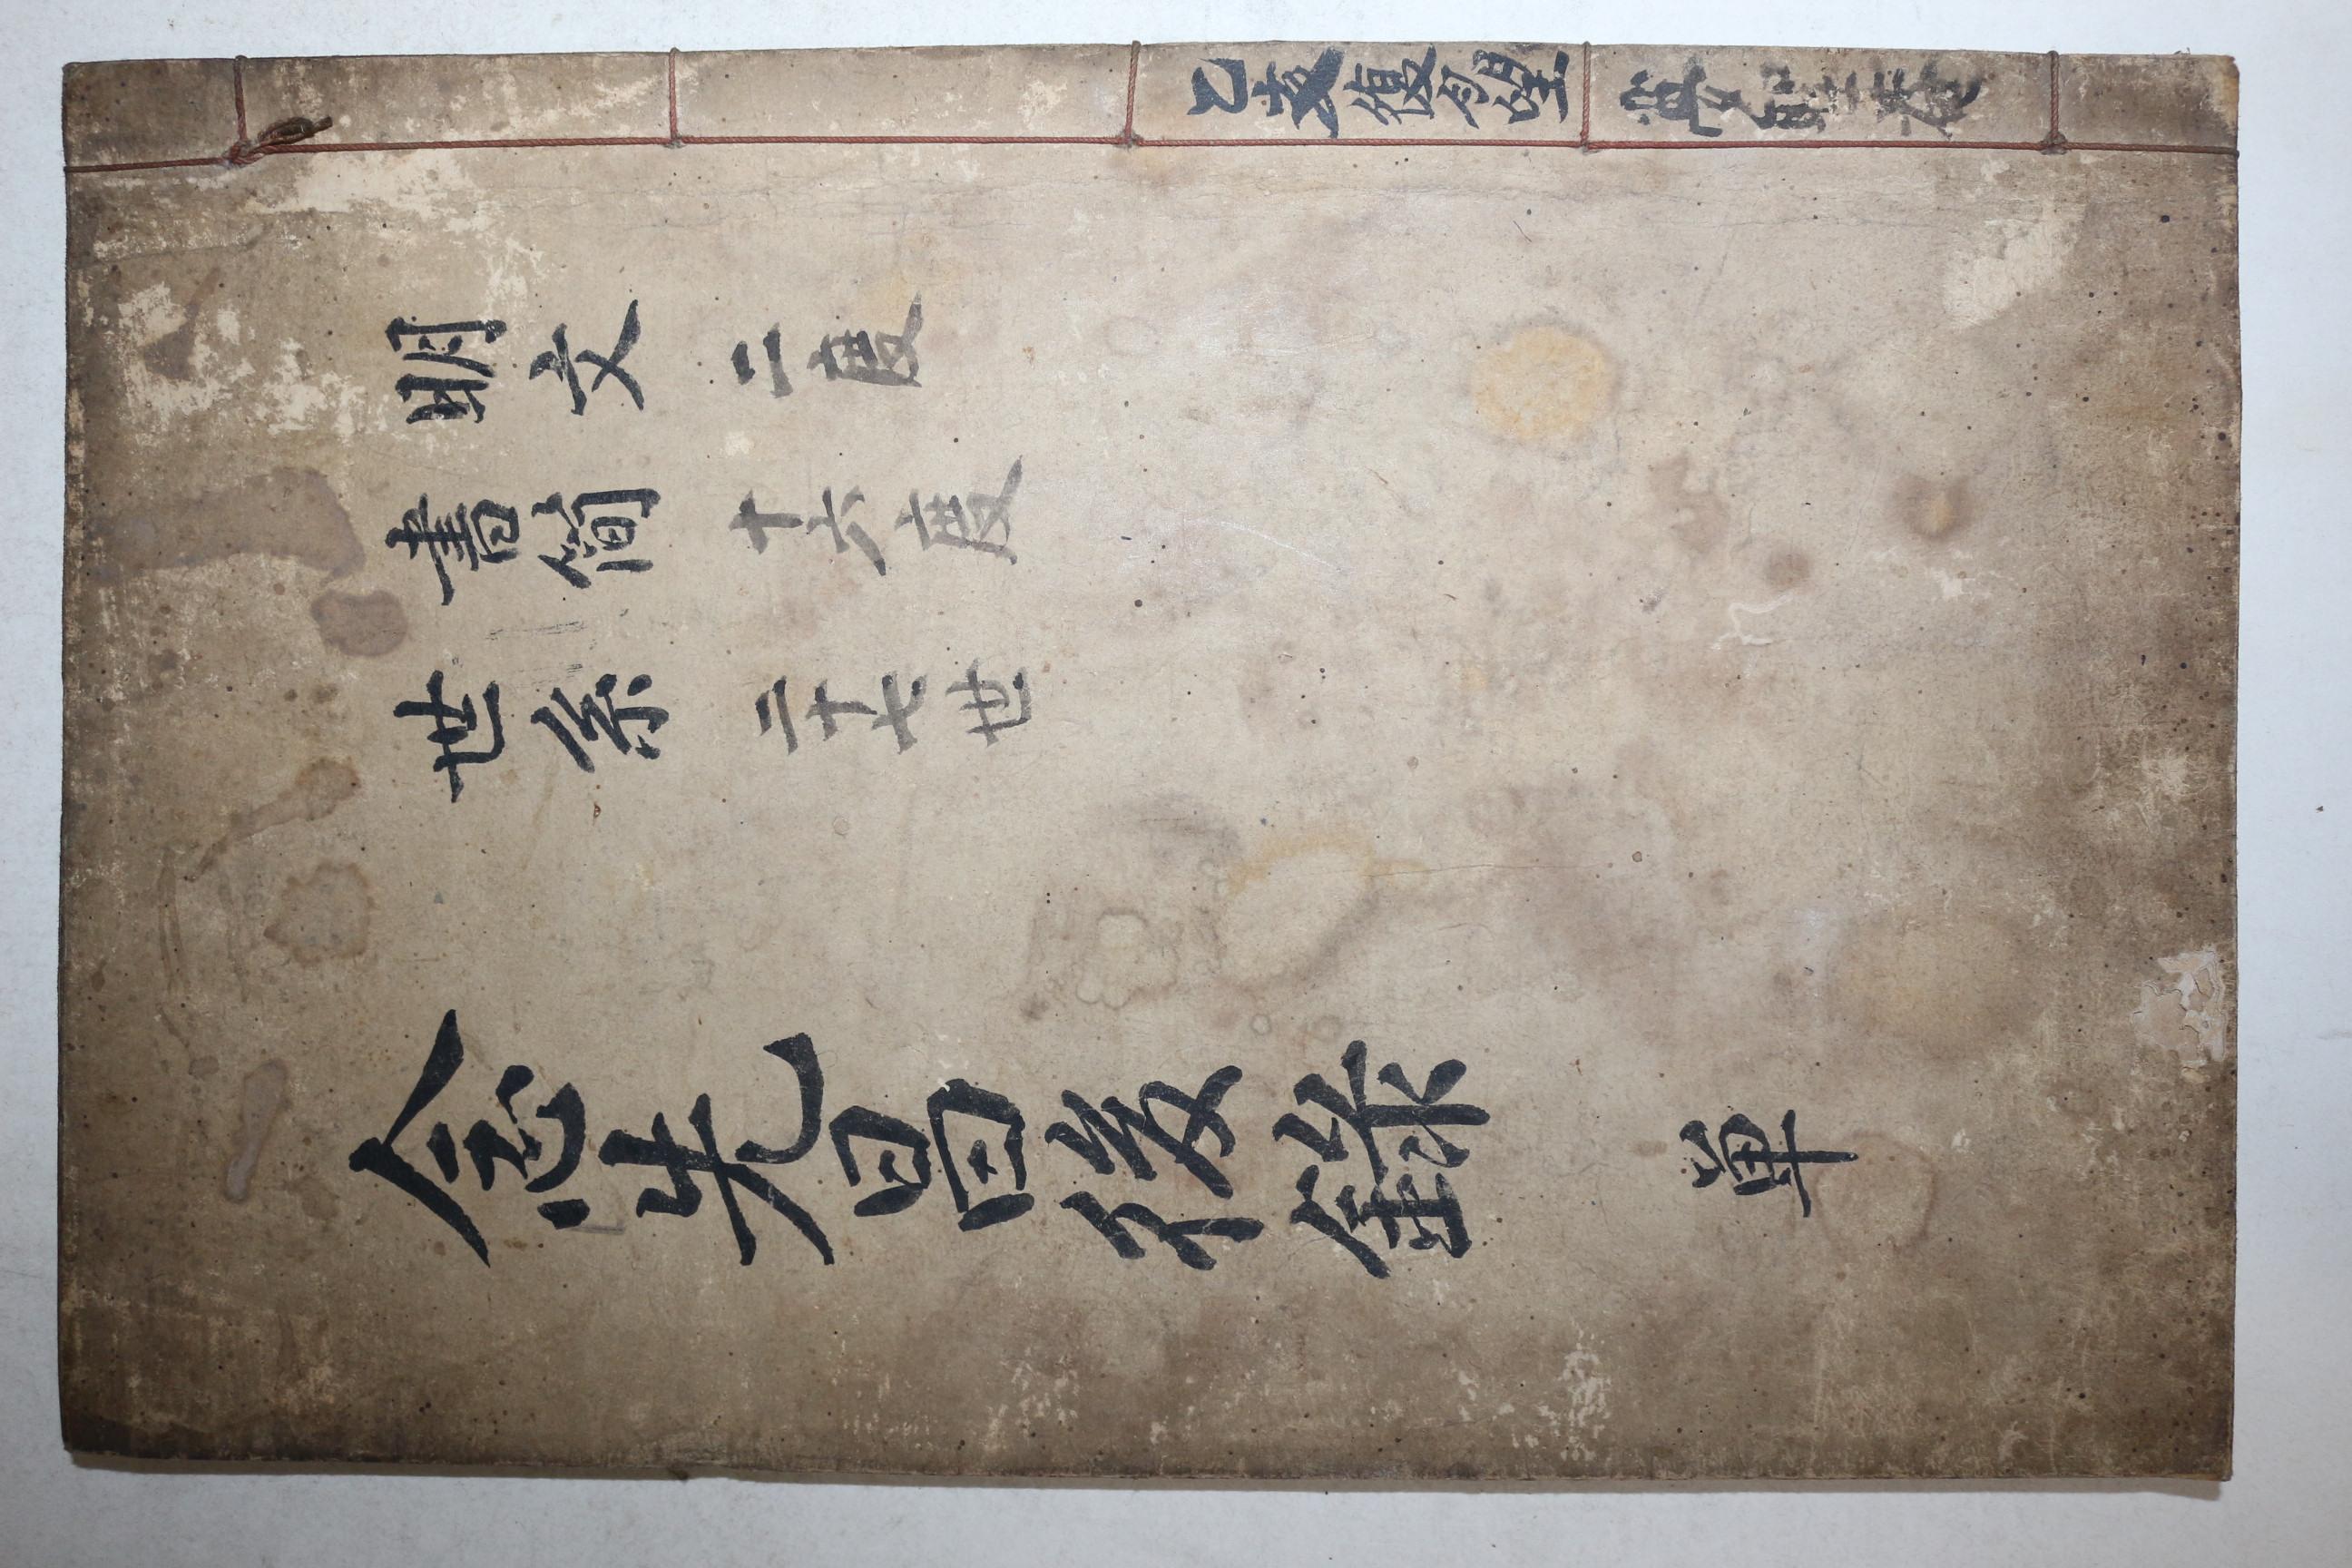 乙亥復月望 夢聖菴
明文 二度
書简 十六度
世系 二十七世
念先昌後錄 单